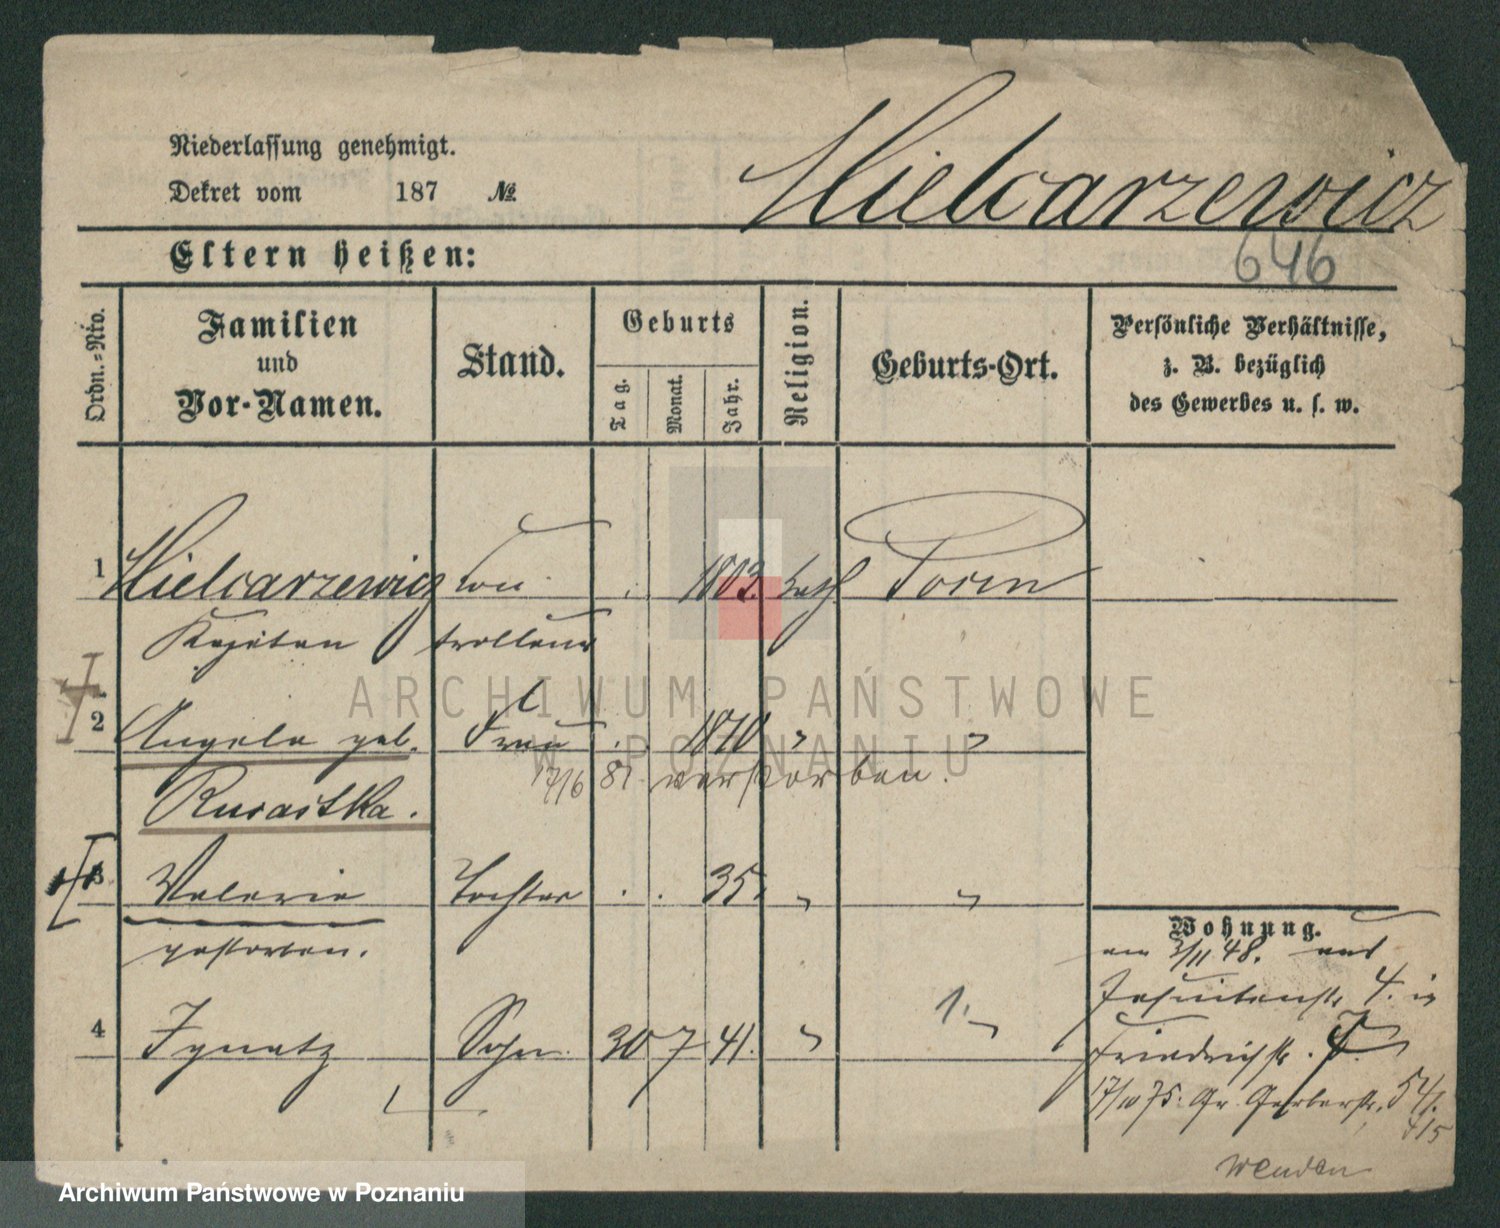 Niederlassung genehmigt.
Dekret vom 187 №
Mielcarzewicz
646
Eltern heißen:
Ordn.=Nro.
Familien und Vor-Namen.
Stand.
Geburts
Tag.
Monat.
Jahr.
Religion.
Geburts-Ort.
Persönliche Verhältnisse,
z. B. bezüglich
des Gewerbes u. s. w.
1 Mielcarzewicz Con 1803. kath. Posen
Kajetan trolleur
2 Angela geb. Frau 1810 " "
17/6 81. verstorben.
3 Valerie Tochter . . 35. " "
gestorben.
4 Ignatz Sohn 30 7 41. " "
1.
Wohnung.
am 3/11 48. aus
Jesuitenstr. 4. in
Friedrichstr.
17/10 75. Gr. Gerberstr. 54/.
Wenden
ARCHIWUM PAŃSTWOWE
W POZNANIU
Archiwum Państwowe w Poznaniu